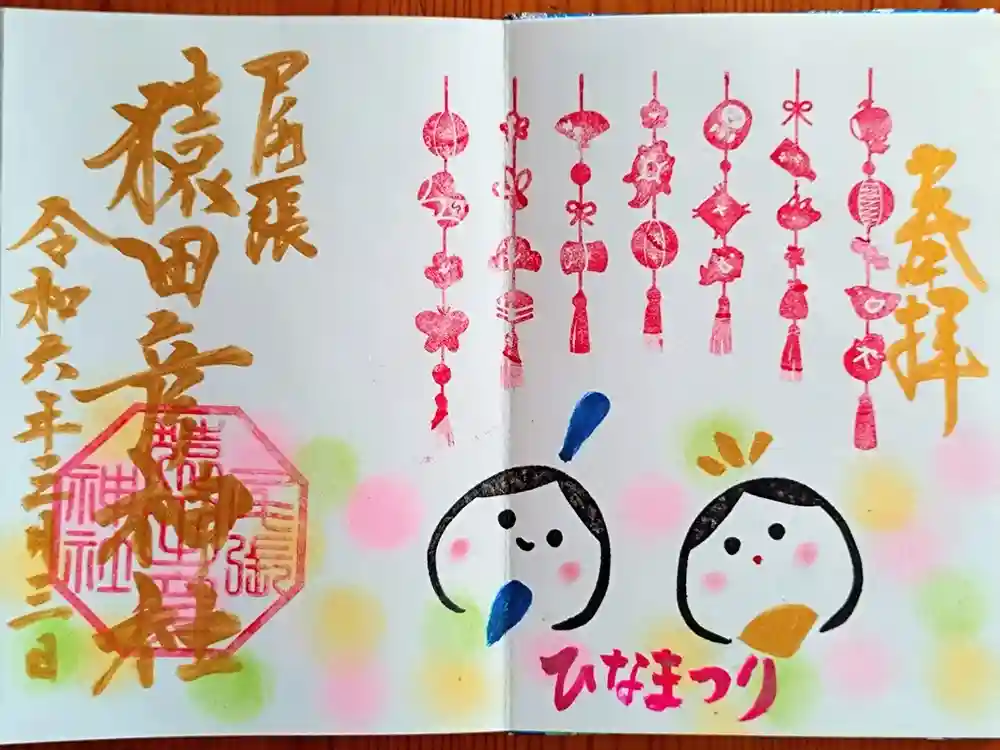 奉拝
ひなまつり
尾張
猿田彦神社
令和六年三月三日